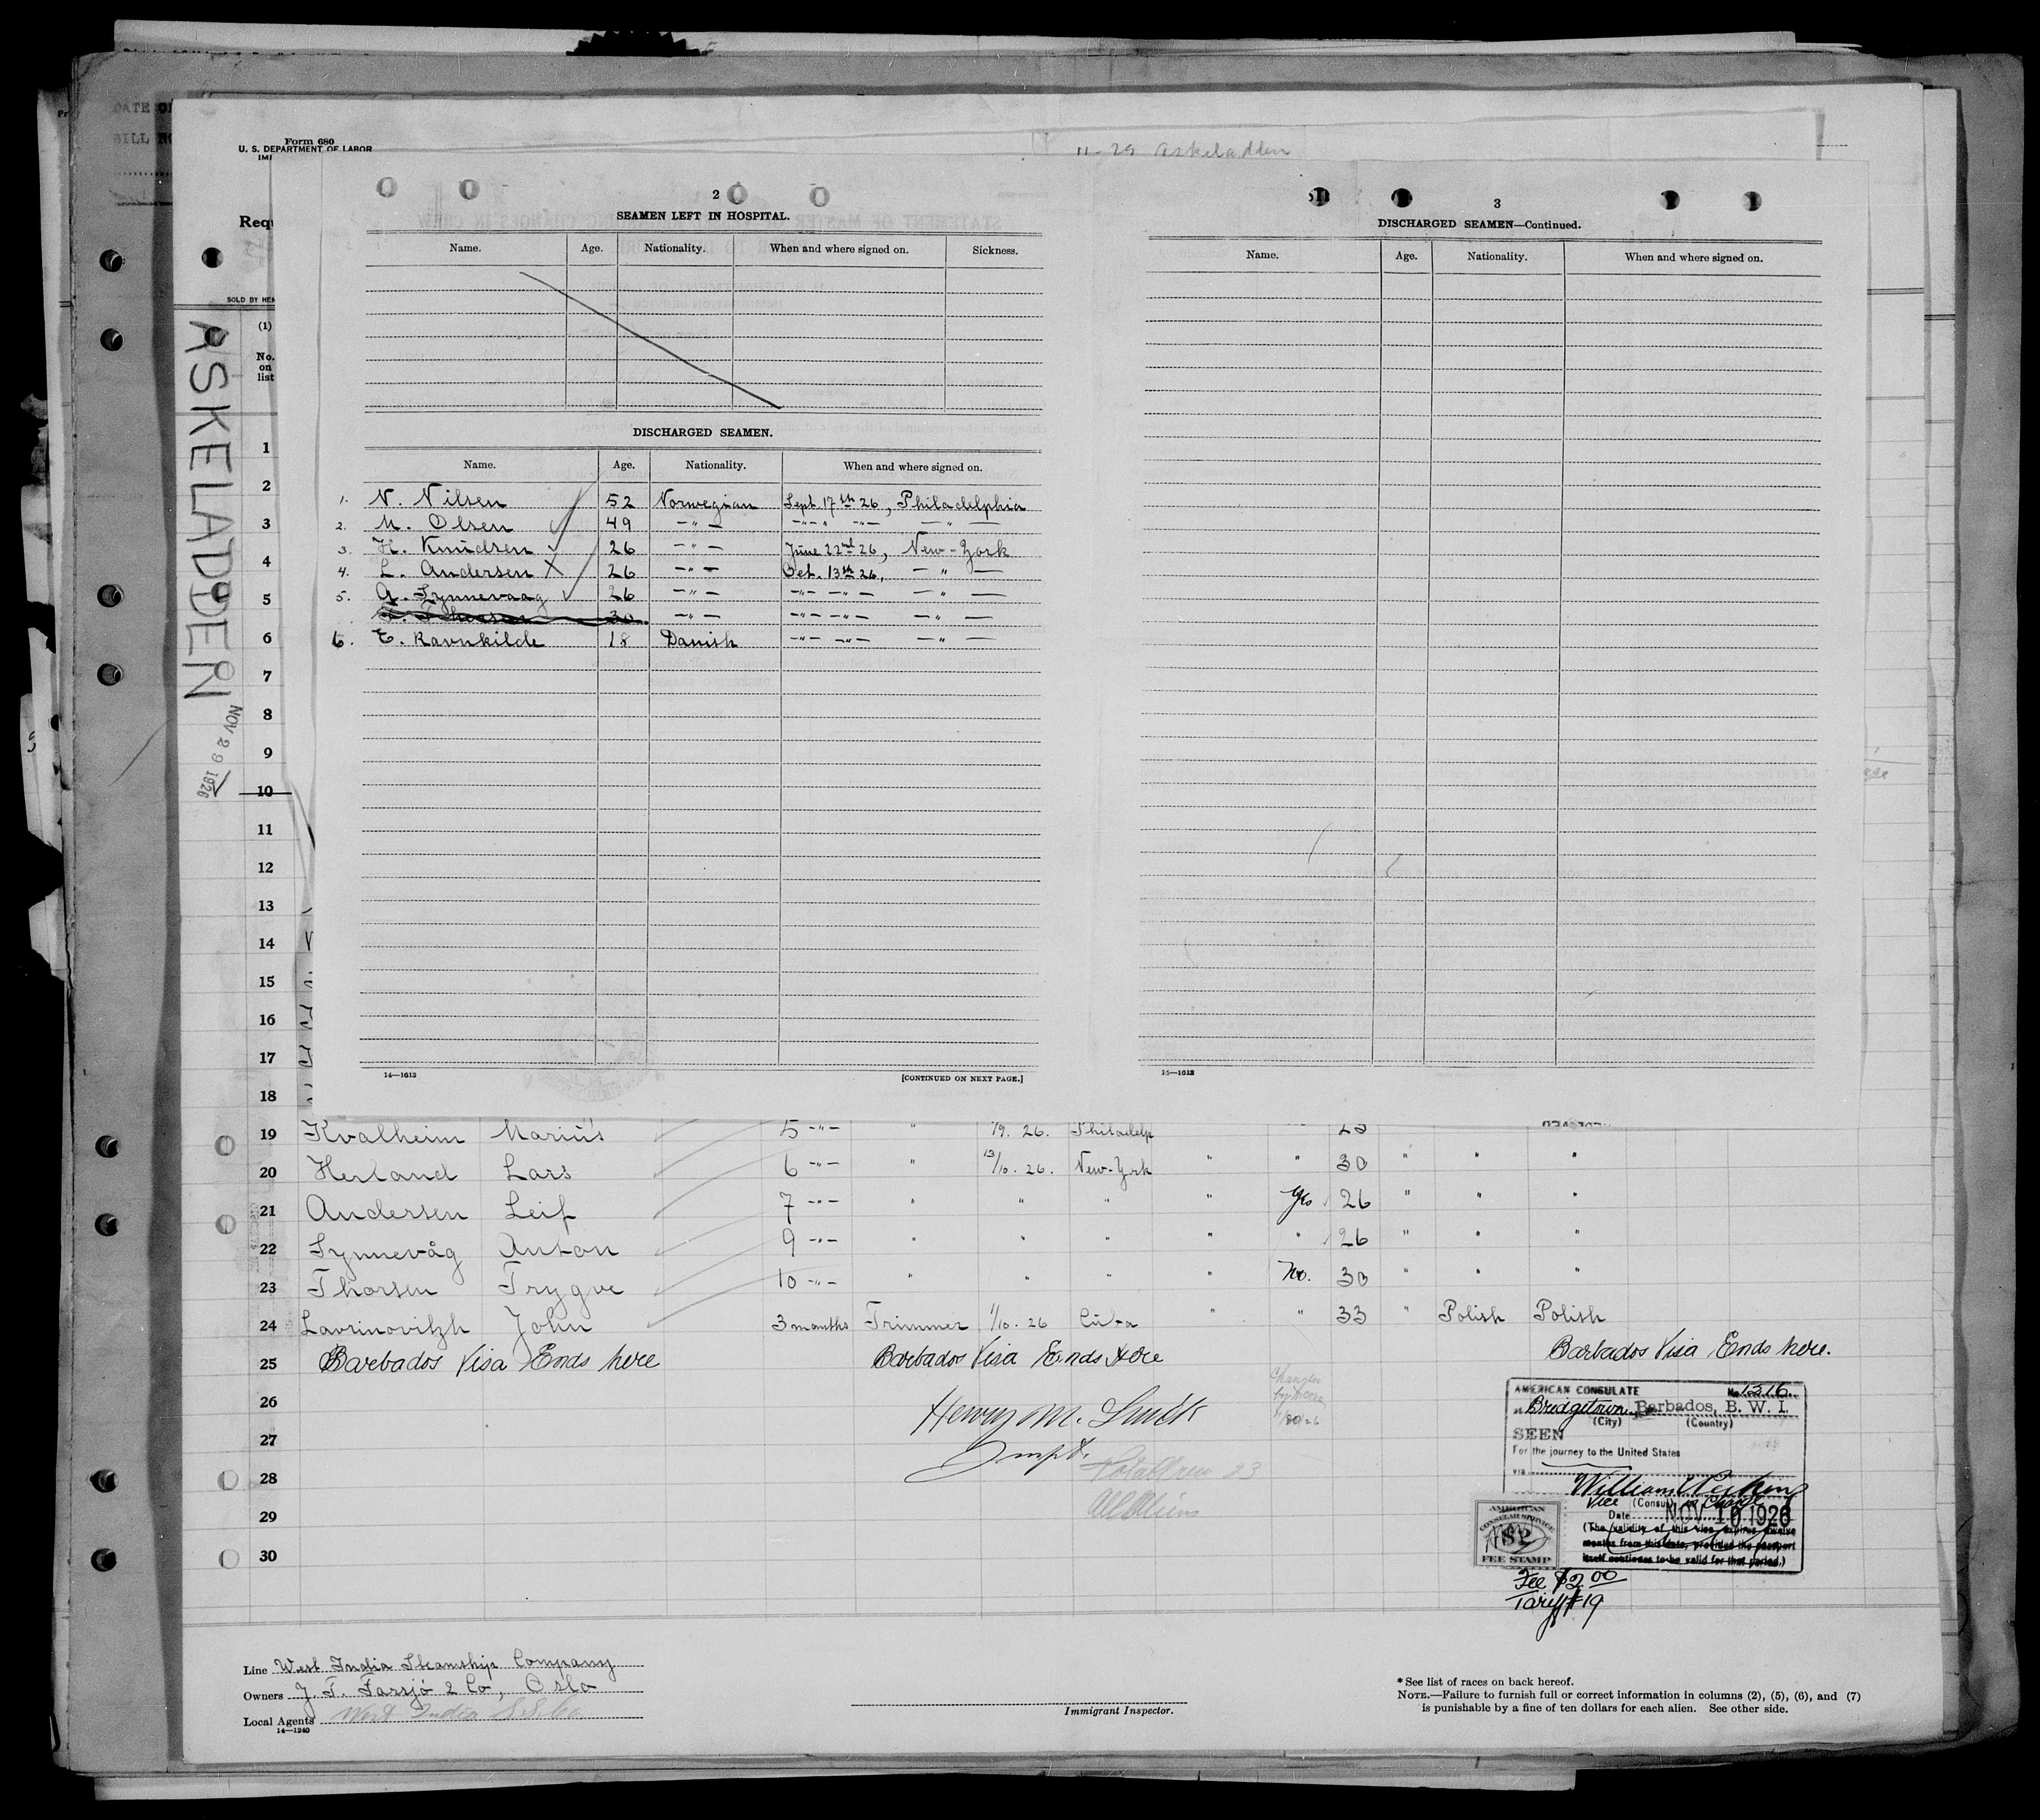 Form 680
U. S. DEPARTMENT OF LABOR
Requ
SOLD BY HEN
11-29 Askeladden
ASKELADDEN
NOV 29 1926
(1)
No.
on
list
2
SEAMEN LEFT IN HOSPITAL.
Name. Age. Nationality. When and where signed on. Sickness.
DISCHARGED SEAMEN.
Name. Age. Nationality. When and where signed on.
1. N. Nilsen 52 Norwegian Sept. 17th 26, Philadelphia
2. M. Olsen 49 -"- -"- -"- -"-
3. H. Knudsen 26 -"- June 22nd 26, New-York
4. L. Andersen X 26 -"- Oct. 13th 26, -"-
5. A. Synnevaag 26 -"- -"- -"- -"-
T. Thorsen 30 -"- -"- -"- -"-
6. E. Ravnkilde 18 Danish -"- -"- -"-
14—1613
[CONTINUED ON NEXT PAGE.]
3
DISCHARGED SEAMEN—Continued.
Name. Age. Nationality. When and where signed on.
15—1613
1
2
3
4
5
6
7
8
9
10
11
12
13
14
15
16
17
18
19 Kvalheim Marius 5 -"- " /9. 26. Philadelp
20 Herland Lars 6 -"- " 13/10. 26. New-York " " 30 " " "
21 Andersen Leif 7 -"- " " " " Yes 26 " " "
22 Synnevåg Anton 9 -"- " " " " " 26 " " "
23 Thorsen Trygve 10 -"- " " " " No. 30 " " "
24 Lavrinovitzh John 3 months Trimmer 1/10. 26 Cuba " " 33 " Polish Polish
25 Barbados Visa Ends here Barbados Visa Ends Here Barbados Visa Ends here.
26
27
28
29
30
Henry M. Smith
Inspt.
Total Crew 23
All Aliens
AMERICAN CONSULATE No. 1316
at Bridgetown Barbados, B. W. I.
(City) (Country)
SEEN
For the journey to the United States
via
Vice (Consul) in Charge
Date NOV 10 1926
(The validity of this visa expires twelve
months from this date, provided the passport
itself continues to be valid for that period.)
AMERICAN
CONSULAR SERVICE
$2
FEE STAMP
Fee $2.00
Tariff #19
Line West India Steamship Company
Owners J. F. Farsjö & Co, Oslo
Local Agents West India S.S. Co.
14—1240
Immigrant Inspector.
* See list of races on back hereof.
NOTE.—Failure to furnish full or correct information in columns (2), (5), (6), and (7)
is punishable by a fine of ten dollars for each alien. See other side.